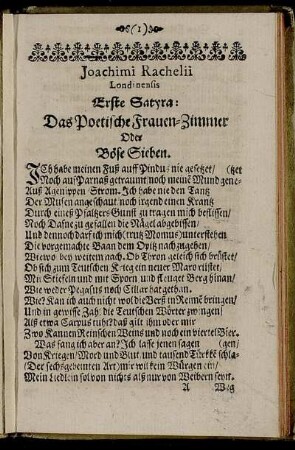 (1)
Joachimi Rachelii
Londinensis
Erste Satyra:
Das Poetische Frauen-Zimmer
Oder
Böse Sieben.
ICh habe meinen Fuß auff Pindus nie gesetzet/ (tzet
Noch auf Parnaß geträumt noch meinē Mund gene-
Auß Aganippen Strom. Ich habe nie den Tantz
Der Musen angeschaut noch irgend einen Krantz
Durch eines Pfaltzers Gunst zu tragen mich beflissen/
Noch Dafne zu gefallen die Nägel abgebissen/
Und dennoch darf ich mich trutz Momus unterstehen
Die vorgemachte Baan dem Opitz nachzugehen/
Wiewol bey weitem nach. Ob Thyron gleich sich brüstet/
Ob sich zum Teutschen Krieg ein neuer Maro rüstet/
Mit Stiefeln und mit Sporn und fleuget Berg hinan/
Wie weder Pegasus noch Cillar hat gethan.
Wie? Kan ich auch nicht wol die Verß in Reime bringen/
Und in gewisse Zahl die Teutschen Wörter zwingen/
Alß etwa Carpus tuht? daß gilt ihm oder mir
Zwo Kannen Reinschen Weins und noch ein viertel Bier.
Was sang ich aber an? Ich lasse jenen sagen (gen/
Von Kriegen/ Mord und Blut und tausend Türckē schla-
(Der sechsgebeinten Art) mir wil kein Würgen ein/
Mein Liedlein sol von nichts alß nur von Weibern seyn.
A Weg